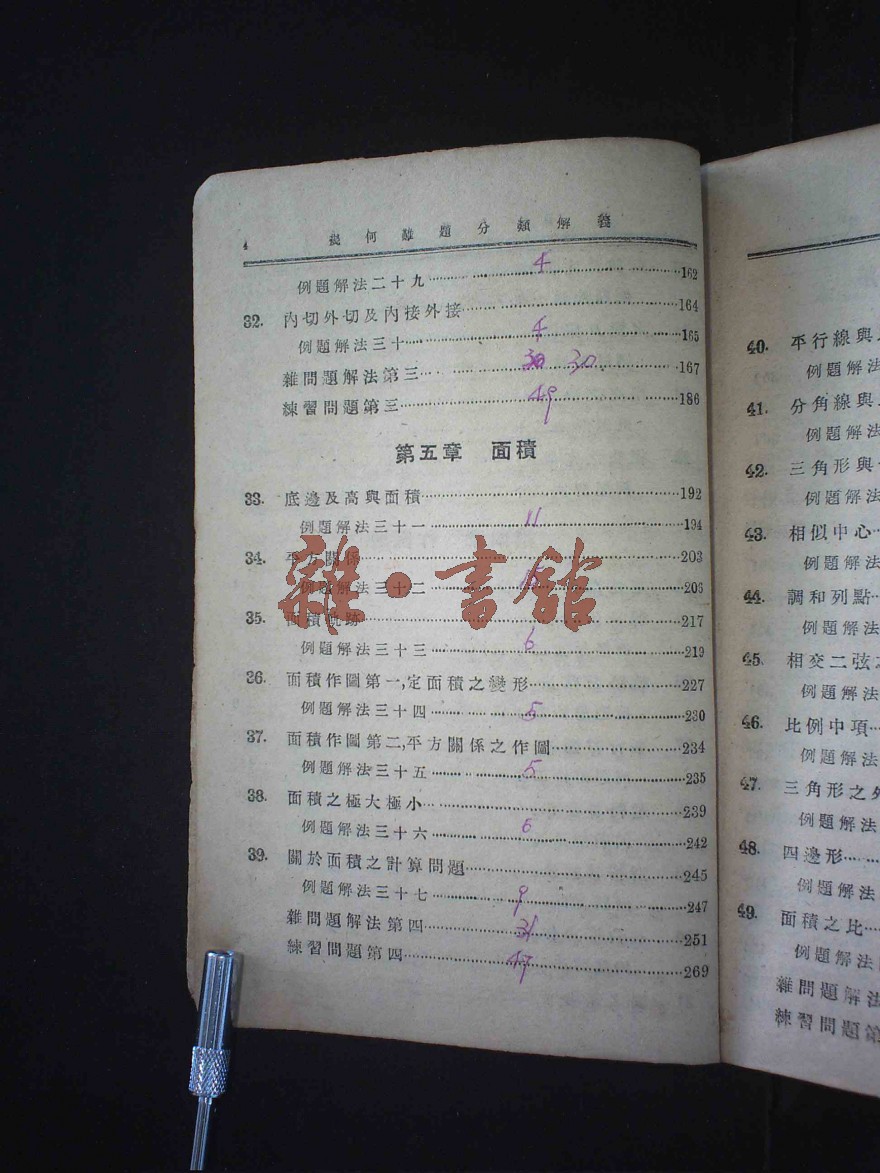 4 幾何難題分類解義
例題解法二十九 4 162
32. 內切外切及內接外接 164
例題解法三十 4 165
雜問題解法第三 30 30 167
練習問題第三 49 186
第五章 面積
33. 底邊及高與面積 192
例題解法三十一 11 194
34. 平方關係 203
例題解法三十二 206
35. 面積軌跡 217
例題解法三十三 6 219
36. 面積作圖第一,定面積之變形 227
例題解法三十四 5 230
37. 面積作圖第二,平方關係之作圖 234
例題解法三十五 5 235
38. 面積之極大極小 239
例題解法三十六 6 242
39. 關於面積之計算問題 245
例題解法三十七 9 247
雜問題解法第四 31 251
練習問題第四 47 269
雜·書館
40. 平行線與
例題解法
41. 分角線與
例題解法
42. 三角形與
例題解法
43. 相似中心
例題解法
44. 調和列點
例題解法
45. 相交二弦之
例題解法
46. 比例中項
例題解法
47. 三角形之外
例題解法
48. 四邊形
例題解法
49. 面積之比
例題解法
雜問題解法
練習問題第